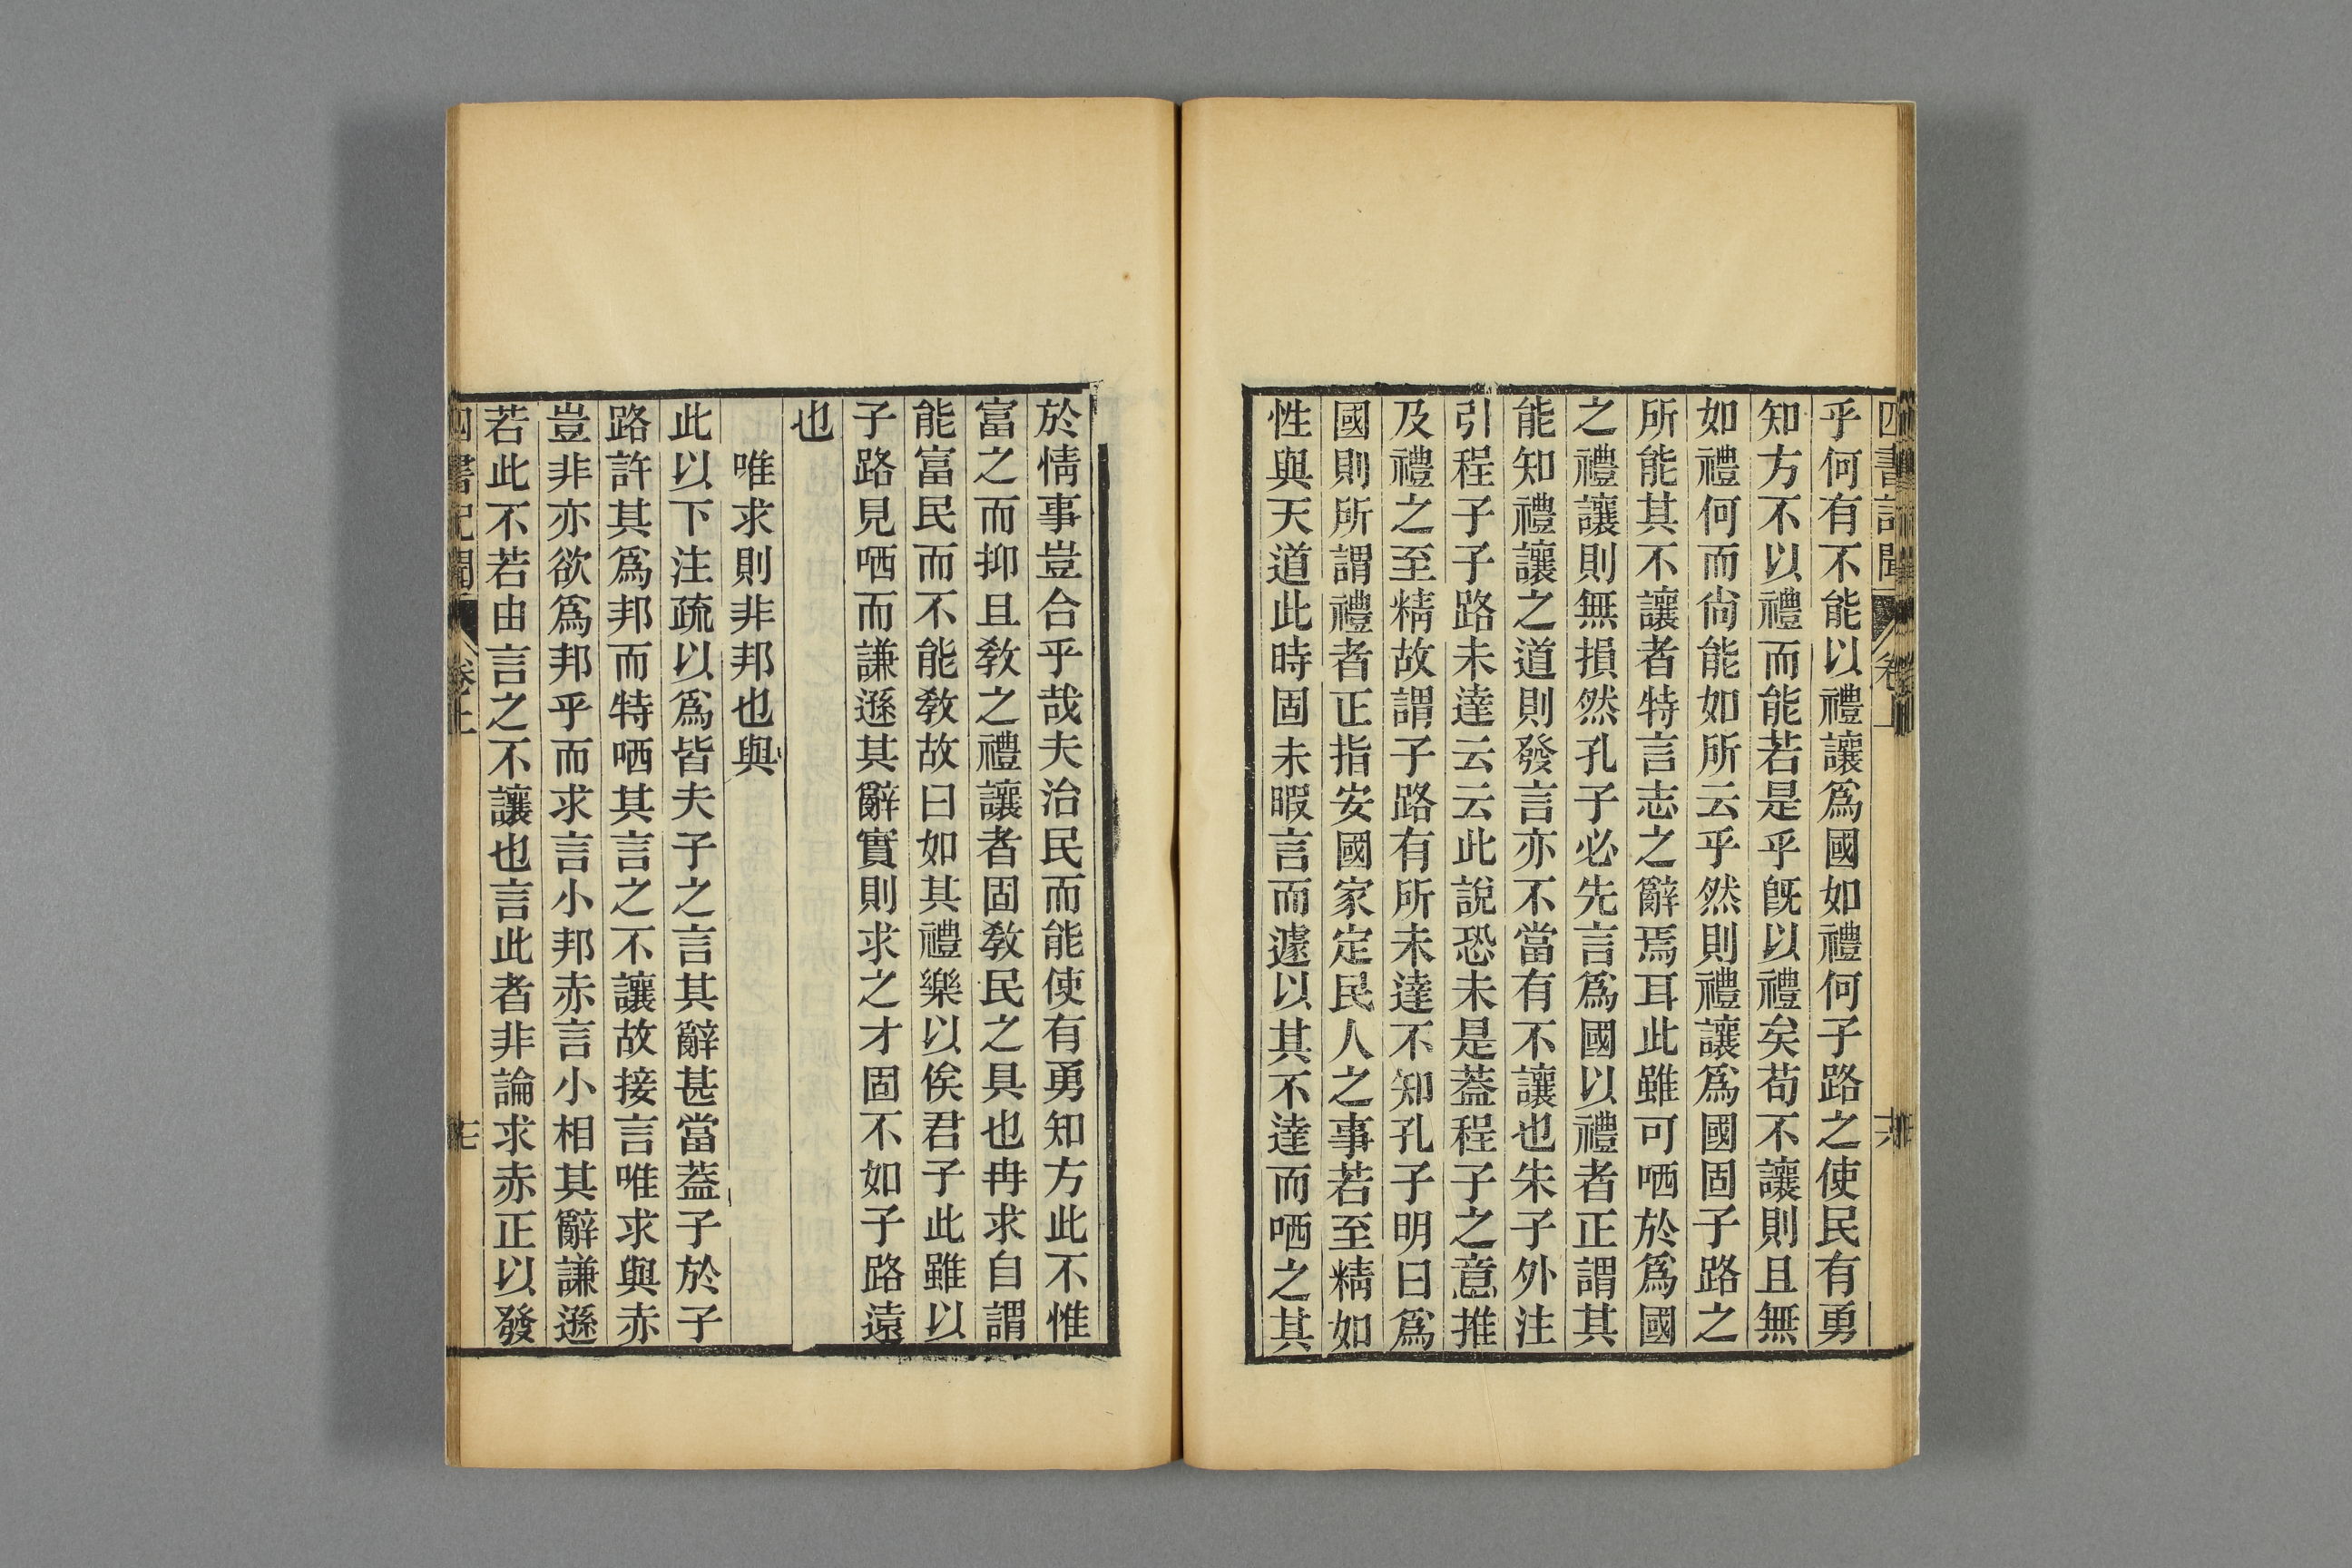 四書記聞 卷上 十六
乎何有不能以禮讓爲國如禮何子路之使民有勇
知方不以禮而能若是乎旣以禮矣苟不讓則且無
如禮何而尙能如所云乎然則禮讓爲國固子路之
所能其不讓者特言志之辭焉耳此雖可哂於爲國
之禮讓則無損然孔子必先言爲國以禮者正謂其
能知禮讓之道則發言亦不當有不讓也朱子外注
引程子子路未達云云此說恐未是蓋程子之意推
及禮之至精故謂子路有所未達不知孔子明曰爲
國則所謂禮者正指安國家定民人之事若至精如
性與天道此時固未暇言而遽以其不達而哂之其
於情事豈合乎哉夫治民而能使有勇知方此不惟
富之而抑且敎之禮讓者固敎民之具也冉求自謂
能富民而不能敎故曰如其禮樂以俟君子此雖以
子路見哂而謙遜其辭實則求之才固不如子路遠
也
唯求則非邦也與
此以下注疏以爲皆夫子之言其辭甚當蓋子於子
路許其爲邦而特哂其言之不讓故接言唯求與赤
豈非亦欲爲邦乎而求言小邦赤言小相其辭謙遜
若此不若由言之不讓也言此者非論求赤正以發
四書記聞 卷上